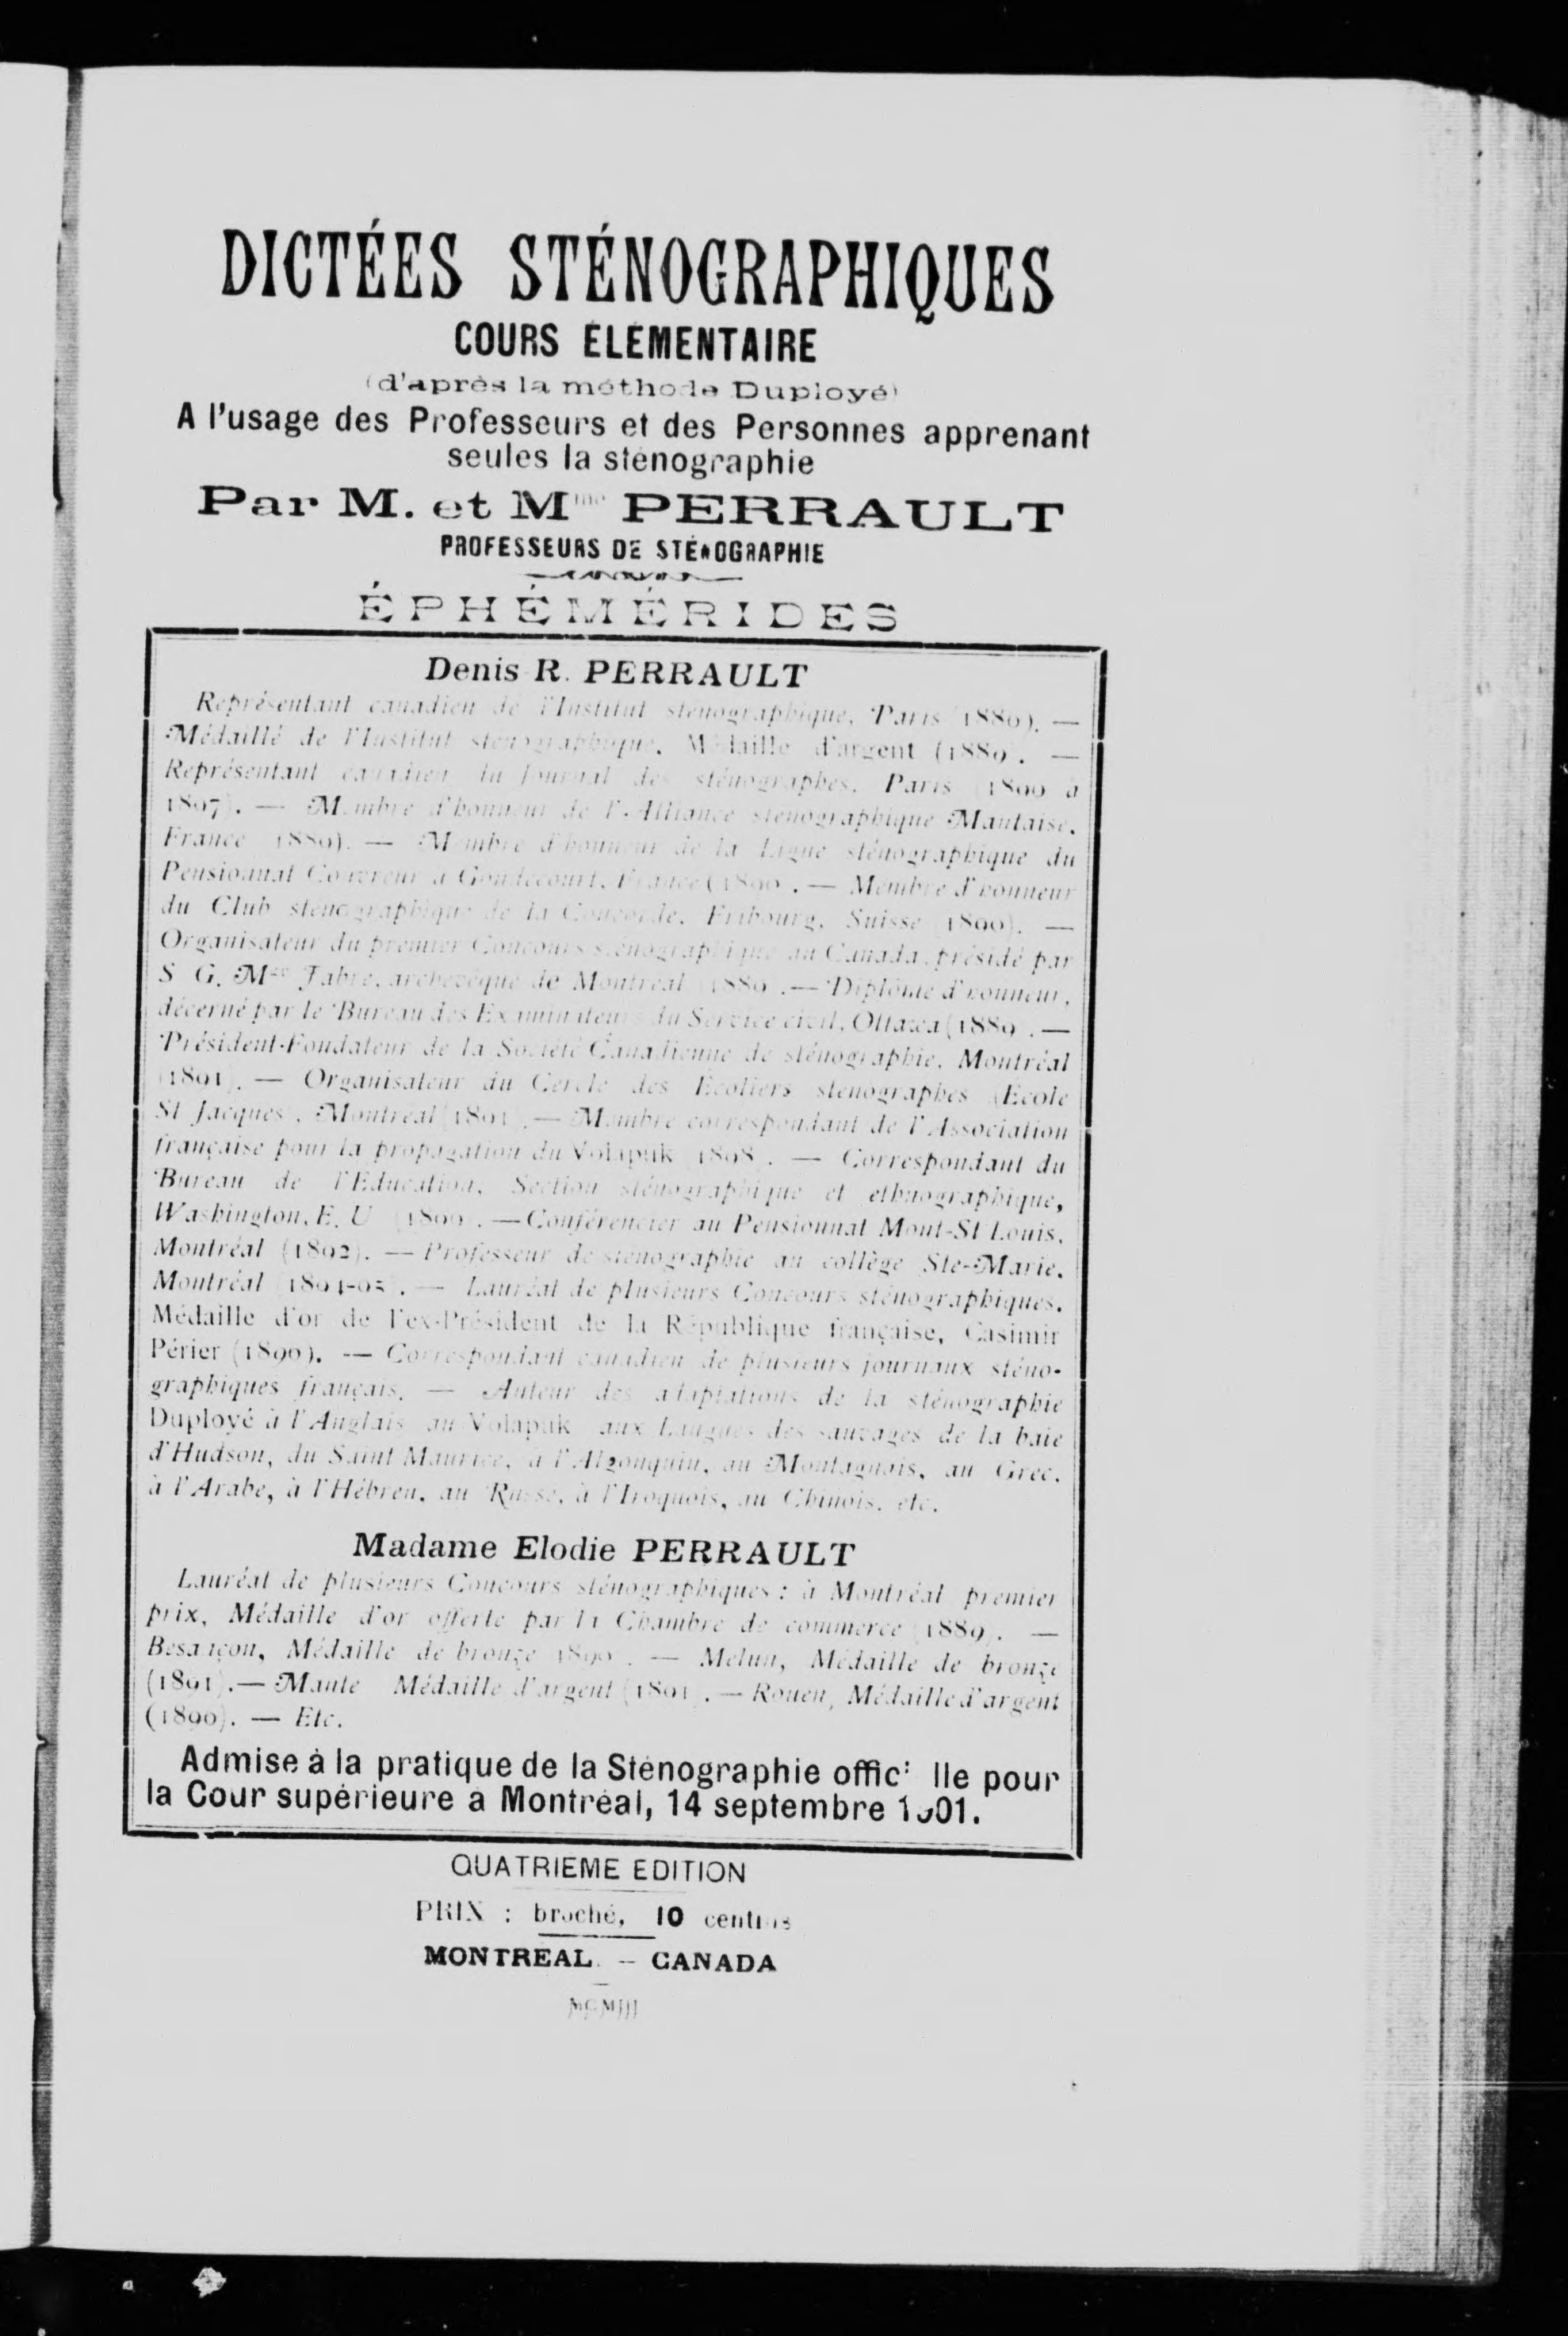 DICTÉES STÉNOGRAPHIQUES
COURS ELEMENTAIRE
(d'après la méthode Duployé)
A l'usage des Professeurs et des Personnes apprenant
seules la sténographie
Par M. et Mme PERRAULT
PROFESSEURS DE STÉNOGRAPHIE
ÉPHÉMÉRIDES
Denis R. PERRAULT
Représentant canadien de l'Institut sténographique, Paris (1889). —
Médaillé de l'Institut sténographique. Médaille d'argent (1889). —
Représentant canadien du Journal des sténographes, Paris (1890 à
1897). — Membre d'honneur de l'Alliance sténographique Mantaise,
France (1889). — Membre d'honneur de la Ligue sténographique du
Pensionnat à Gondecourt, France (1890). — Membre d'honneur
du Club sténographique de la Concorde, Fribourg, Suisse (1890). —
Organisateur du premier Concours sténographique au Canada, présidé par
S. G. Mgr Fabre, archevêque de Montréal (1889). — Diplôme d'honneur,
décerné par le Bureau des Examinateurs du Service civil, Ottawa (1889). —
Président-Fondateur de la Société Canadienne de sténographie, Montréal
(1891). — Organisateur du Cercle des Écoliers sténographes (École
St Jacques), Montréal (1891). — Membre correspondant de l'Association
française pour la propagation du Volapuk. — Correspondant du
Bureau de l'Education, Section sténographique et ethnographique,
Washington, E. U. (1890). — Conférencier au Pensionnat Mont-St Louis,
Montréal (1892). — Professeur de sténographie au collège Ste-Marie,
Montréal (1894-95). — Lauréat de plusieurs Concours sténographiques.
Médaille d'or de l'ex-Président de la République française, Casimir
Périer (1896). — Correspondant canadien de plusieurs journaux sténo-
graphiques français. — Auteur des adaptations de la sténographie
Duployé à l'Anglais au Volapuk aux Langues des sauvages de la baie
d'Hudson, du Saint Maurice, à l'Algonquin, au Montagnais, au Grec,
à l'Arabe, à l'Hébreu, au Russe, à l'Iroquois, au Chinois, etc.
Madame Elodie PERRAULT
Lauréat de plusieurs Concours sténographiques : à Montréal premier
prix, Médaille d'or offerte par la Chambre de commerce (1889). —
Besançon, Médaille de bronze (1890). — Melun, Médaille de bronze
(1891). — Mante Médaille d'argent (1891). — Rouen, Médaille d'argent
(1896). — Etc.
Admise à la pratique de la Sténographie officielle pour
la Cour supérieure à Montréal, 14 septembre 1901.
QUATRIEME EDITION
PRIX : broché, 10 centins
MONTREAL. — CANADA
MCMIII